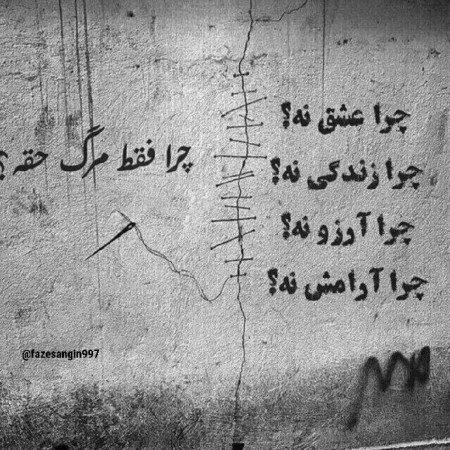 چرا عشق نه؟
چرا زندگی نه؟
چرا آرزو نه؟
چرا آرامش نه؟
چرا فقط مرگ حقه؟
@fazesangin997